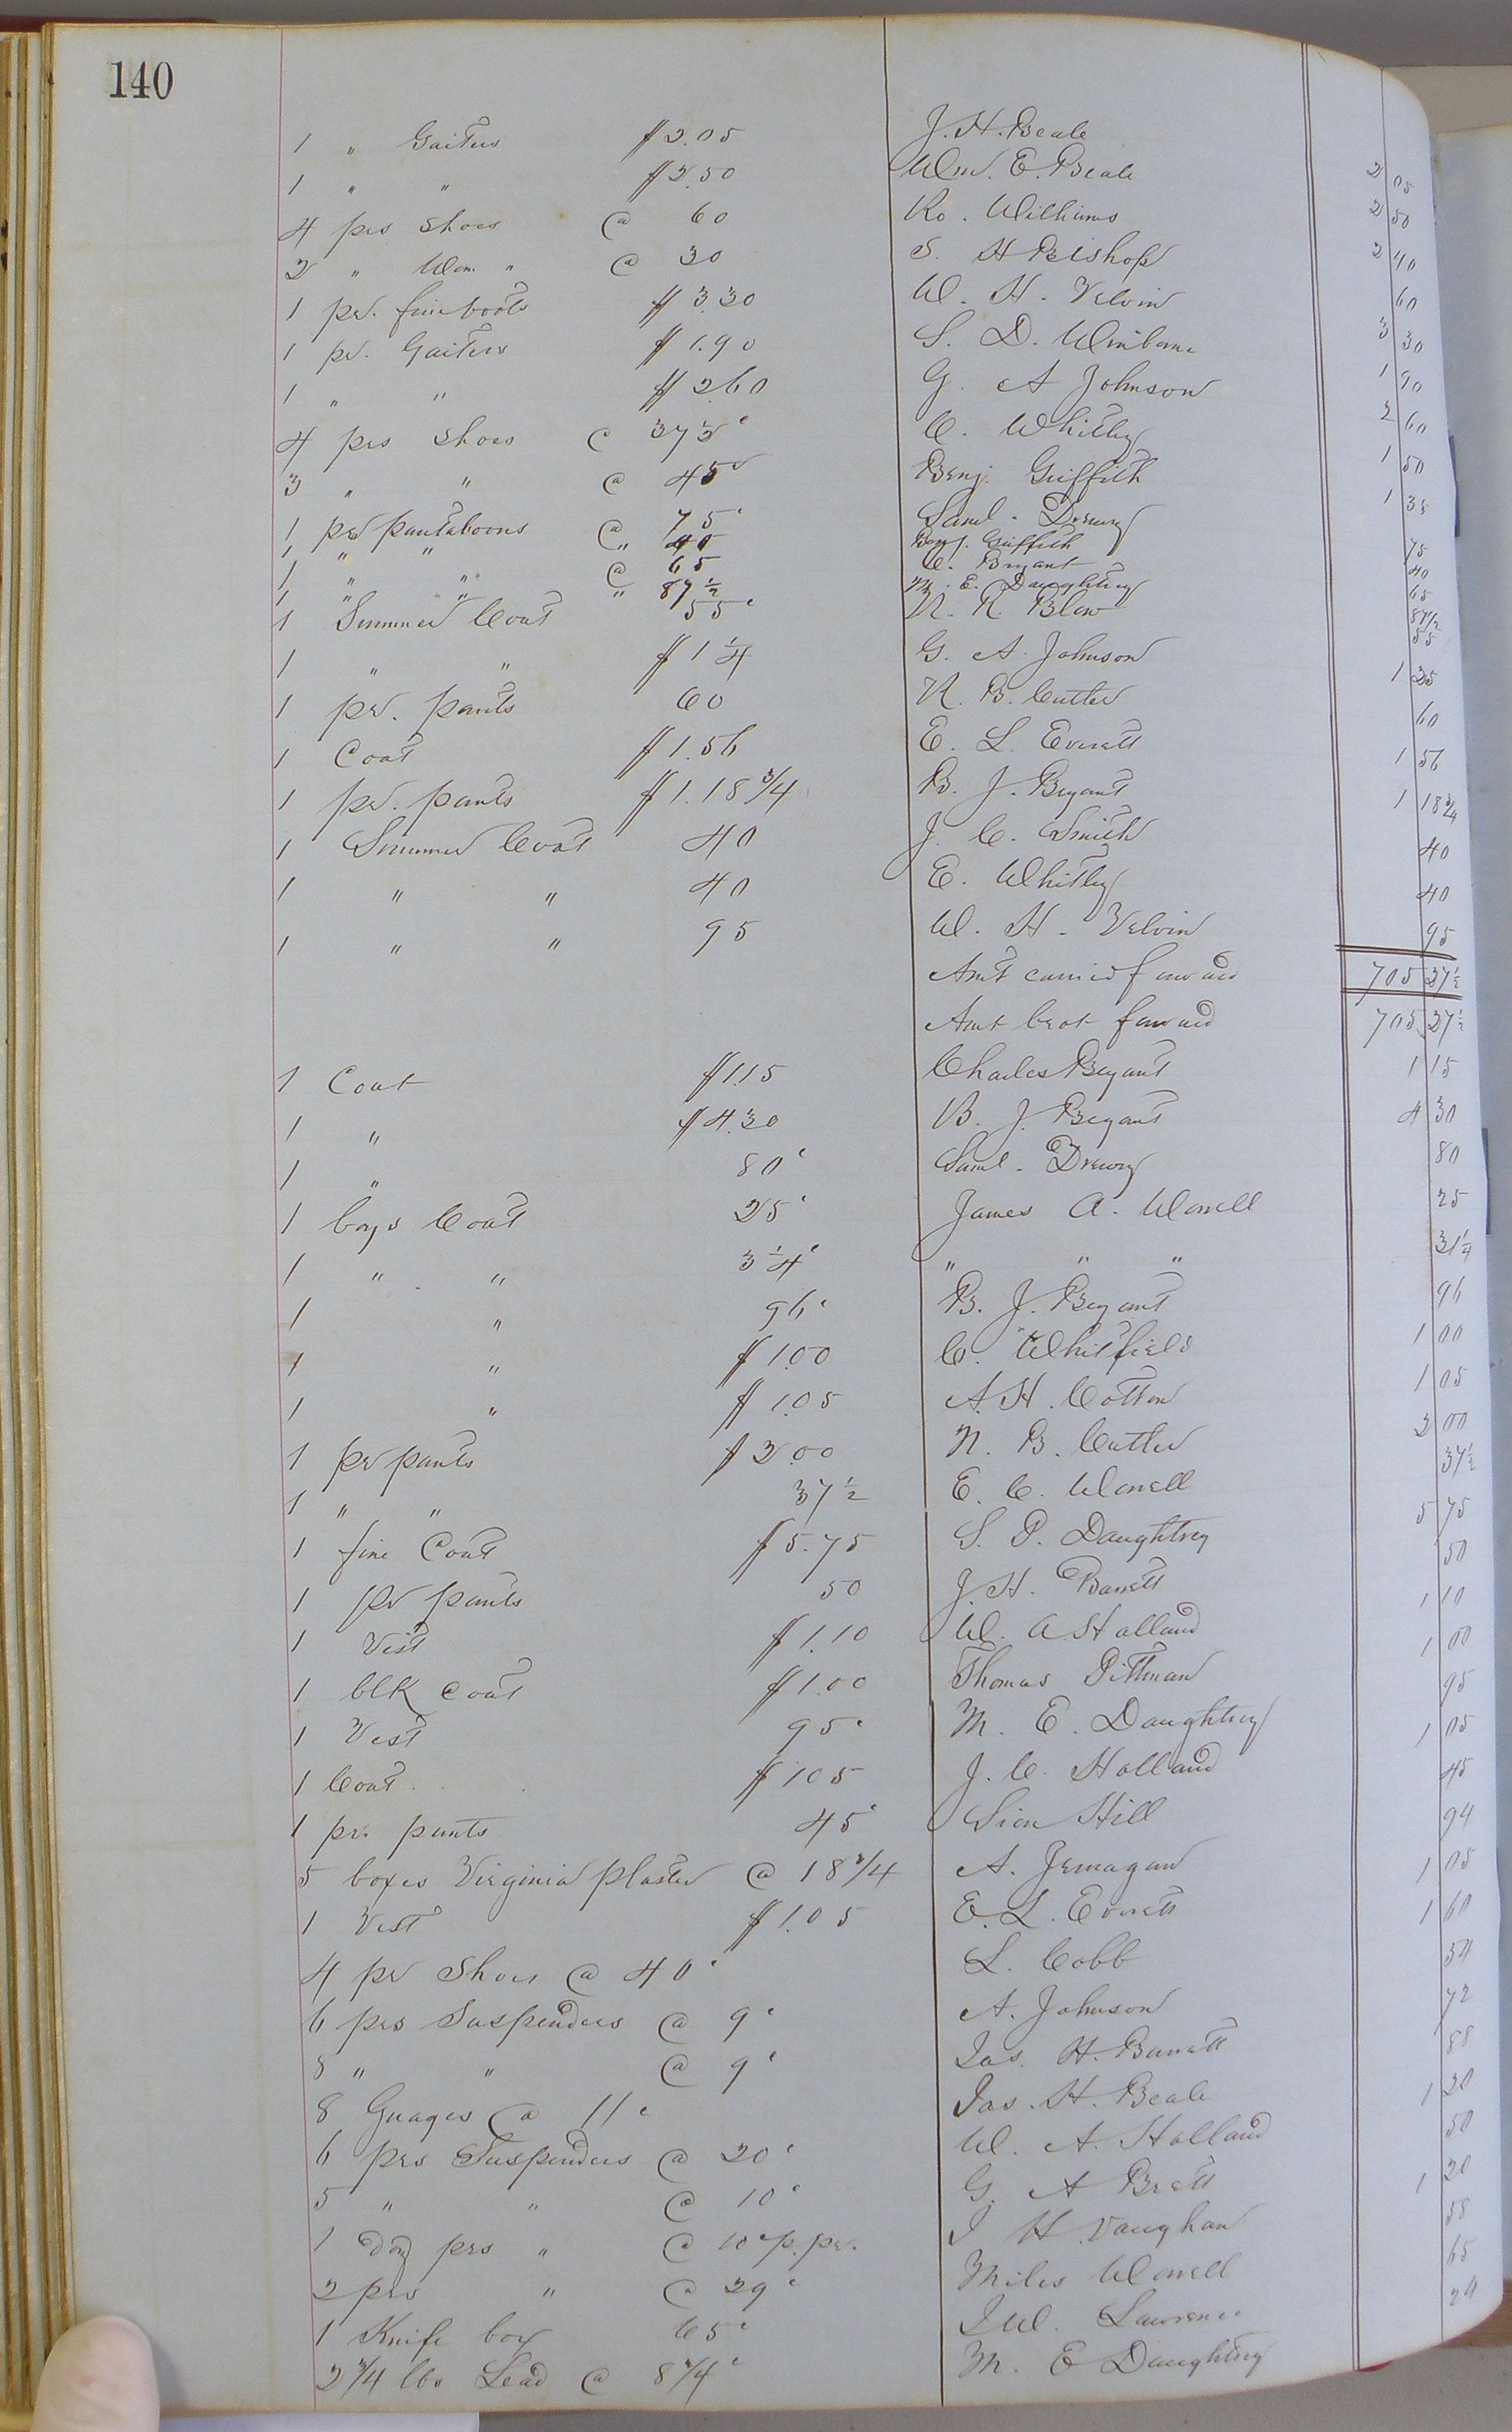 140
1 " Gaiters $2.05 J. H. Beale 2 05
1 " " $2.50 Wm. E. Beale 2 50
4 prs Shoes @ 60 Ro. Williams 2 40
2 " Wom. " @ 30 S. H Bishop 60
1 pr. fine boots $3.30 W. H. Velvin 3 30
1 pr. Gaiters $1.90 S. D. Winborne 1 90
1 " " $2.60 G. A Johnson 2 60
4 prs Shoes @ 37½ c C. Whitley 1 50
3 " " @ 45 c Benj. Griffith 1 35
1 pr pantaloons @ 75 c Saml. Drewry 75
1 " " @ " 40 Benj. Griffith 40
1 " " @ 65 C. Bryant 65
1 " " " 87½ M. E. Daughtrey 87½
1 Summer Coat 55 c N. R. Blow 55
1 " " $1¼ G. A. Johnson 1 25
1 pr. pants 60 N. B. Cutler 60
1 Coat $1.56 E. L. Everett 1 56
1 pr. pants $1.18¾ B. J. Bryant 1 18¾
1 Summer Coat 40 J. C. Smith 40
1 " " 40 E. Whitley 40
1 " " 95 W. H. Velvin 95
Amt carried forward 705 37½
Amt brot forward 705 37½
1 Coat $1.15 Charles Bryant 1 15
1 " $4.30 B. J. Bryant 4 30
1 " 80 c Saml. Drewry 80
1 boys Coat 25 c James A. Worrell 25
1 " " 31¼ c " " " 31¼
1 " 96 c B. J. Bryant 96
1 " $1.00 C. Whitfield 1 00
1 " $1.05 A. H. Cotton 1 05
1 pr pants $2.00 N. B. Cutler 2 00
1 " " 37½ E. C. Worrell 37½
1 fine Coat $5.75 S. P. Daughtrey 5 75
1 pr pants 50 J. H. Barrett 50
1 Vest $1.10 W. A. Holland 1 10
1 blk Coat $1.00 Thomas Pittman 1 00
1 Vest 95 c M. E. Daughtrey 95
1 Coat $1.05 J. C. Holland 1 05
1 pr. pants 45 c Sion Hill 45
5 boxes Virginia plaster @ 18¾ A. Jernagan 94
1 Vest $1.05 E. L. Everett 1 05
4 pr Shoes @ 40 c L. Cobb 1 60
6 prs Suspenders @ 9 c A. Johnson 54
8 " " @ 9 c Jas. H. Barrett 72
8 Guages @ 11 c Jas. H. Beale 88
6 prs Suspenders @ 20 c W. A. Holland 1 20
5 " " @ 10 c G. A Brett 50
1 doz prs " @ 10 c p. pr. J H. Vaughan 1 20
2 prs " @ 29 c Miles Worrell 58
1 Knife box 65 c J W. Lawrence 65
2¾ lbs Lead @ 8¾ c M. E Daughtrey 24